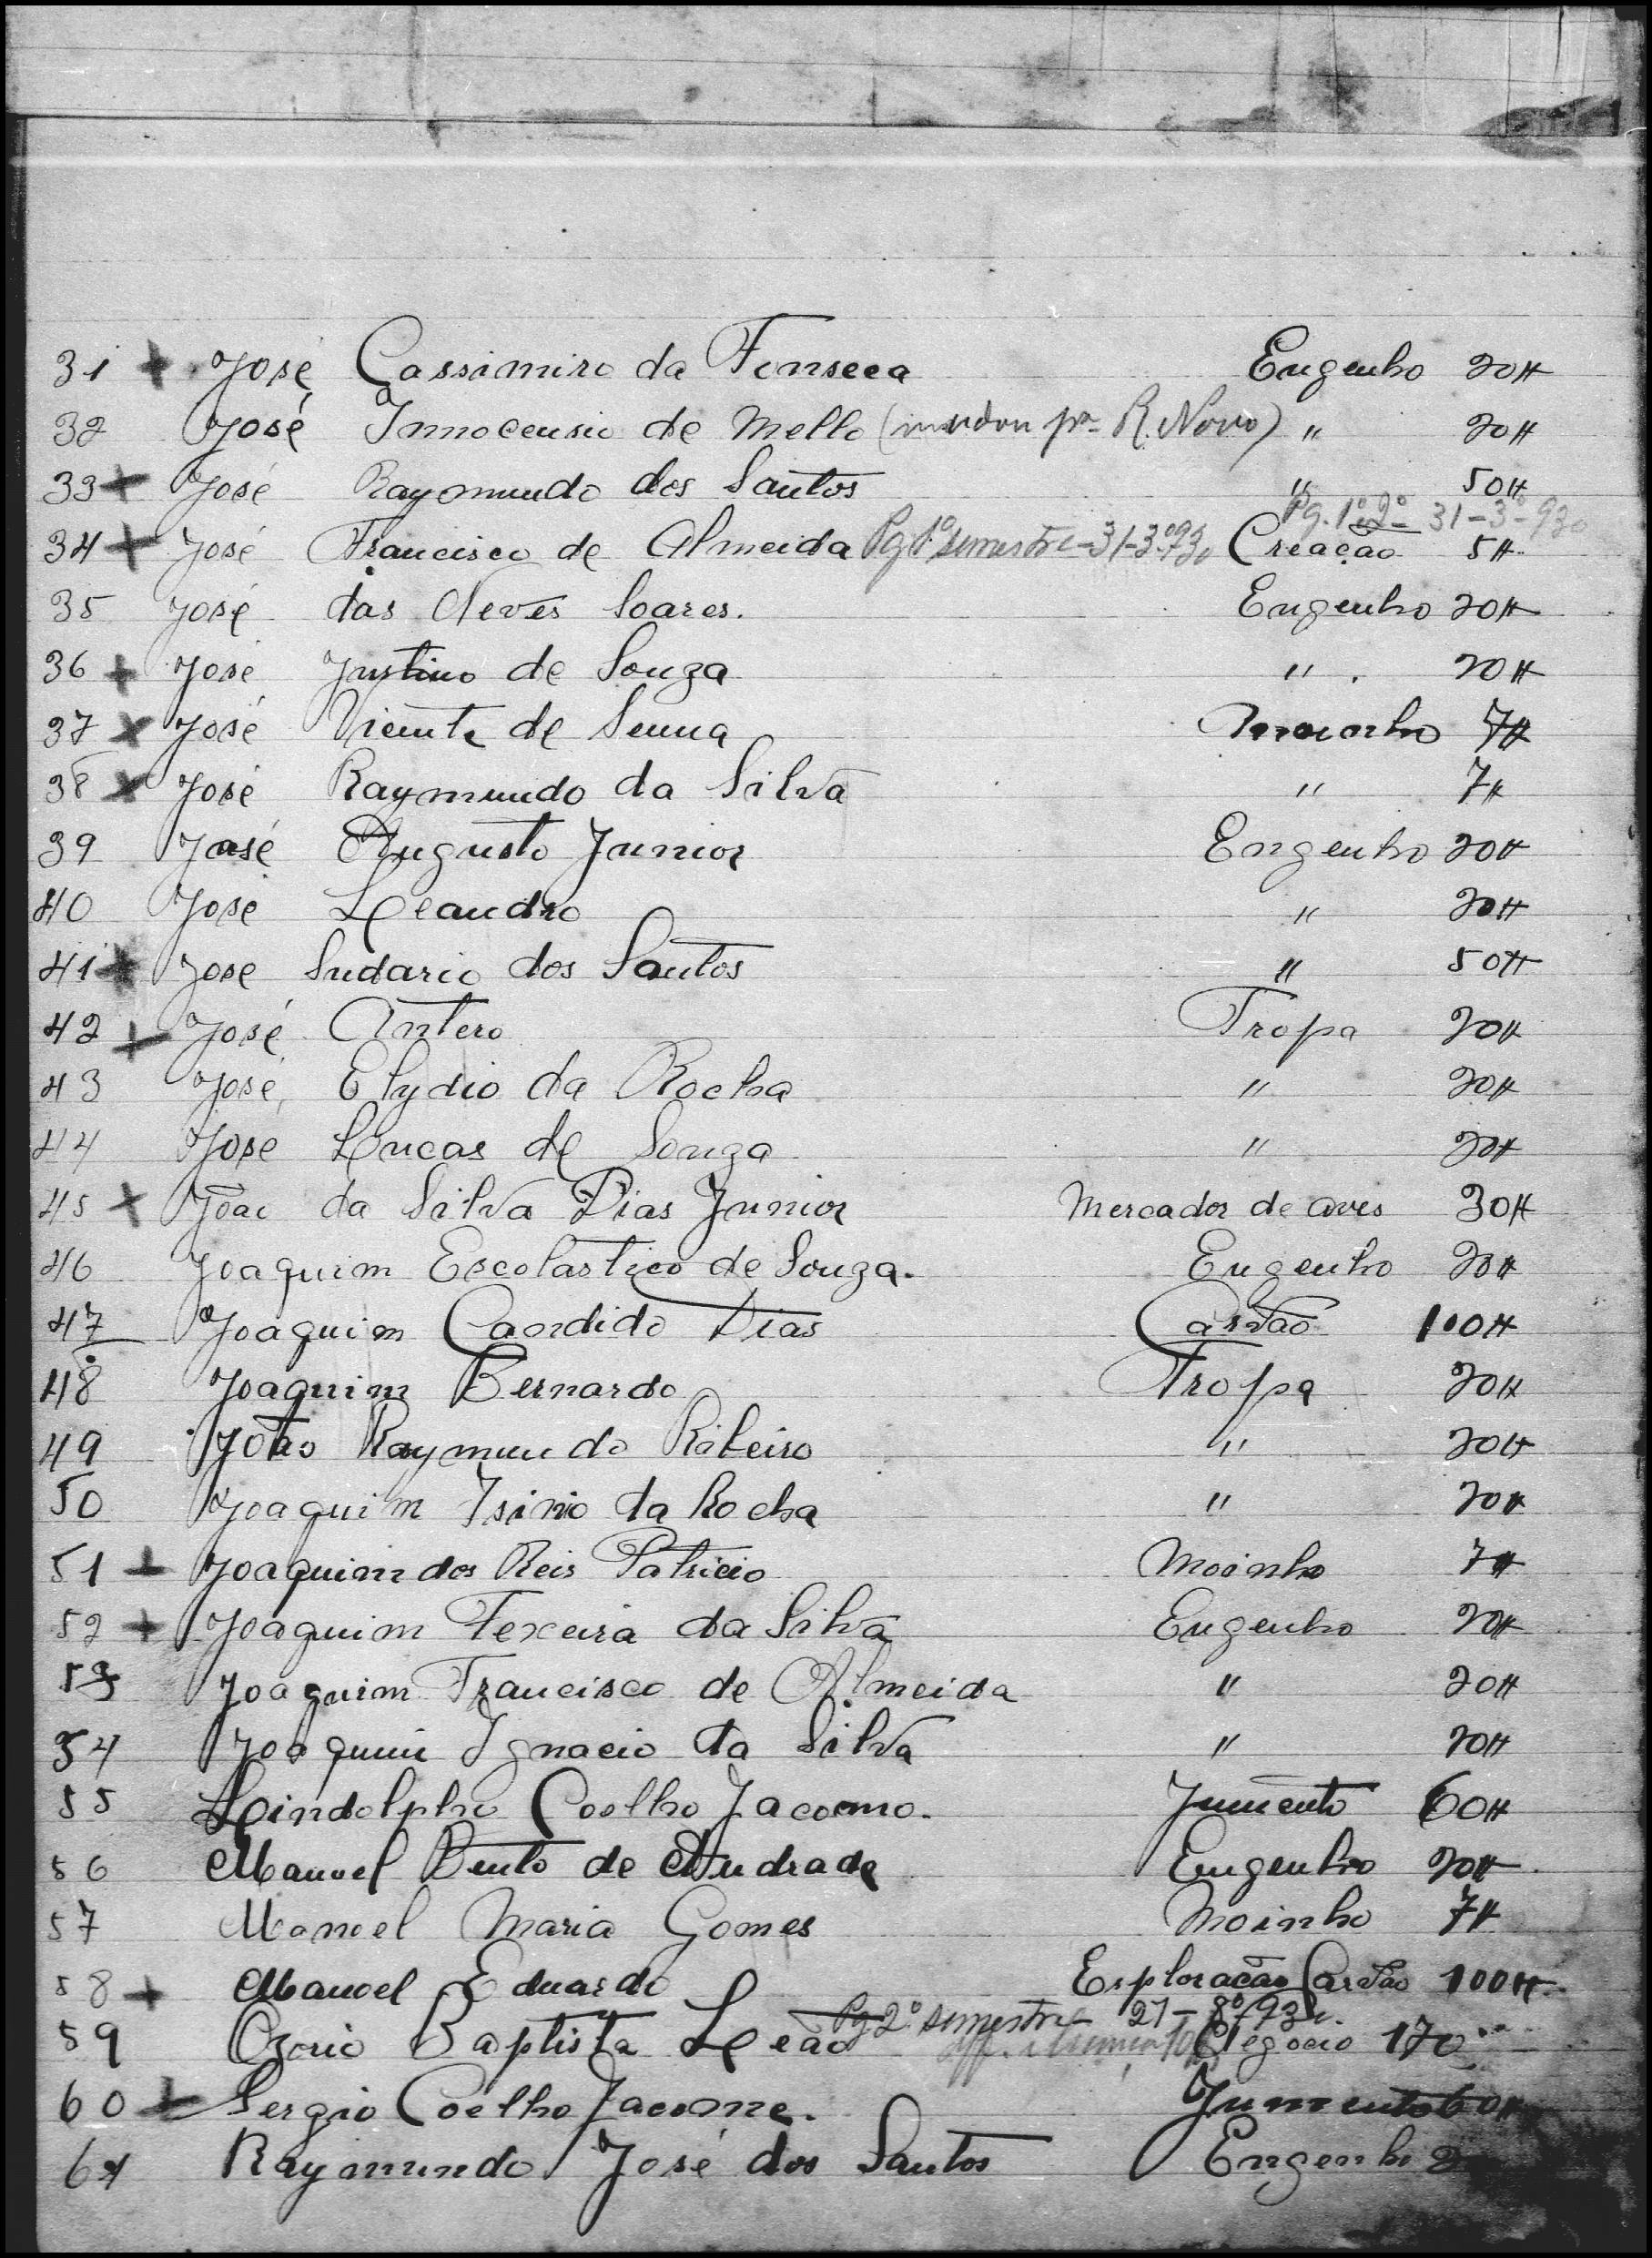 31 + José Cassimiro da Fonseca Engenho 20#
32 José Innocensio de Mello (mudou pª R. Novo) " 20#
33 + José Raymundo dos Santos " 50#
Pg. 1º e 2º 31-3º-930
34 + José Francisco de Almeida Pg 1º semestre-31-3º-930 Creação 5#
35 José das Neves Soares. Engenho 20#
36 + José Justino de Souza " 20#
37 x José Vicente de Senna Moinho 7#
38 x José Raymundo da Silva " 7#
39 José Augusto Junior Engenho 20#
40 José Leandro " 20#
41 x José Sudario dos Santos " 50#
42 + José Antero Tropa 20#
43 José Elydio da Rocha " 20#
44 José Lucas de Souza " 20#
45 x João da Silva Dias Junior Mercador de aves 30#
46 Joaquim Escolastico de Souza. Engenho 20#
47 Joaquim Candido Dias Carvão 100#
48 Joaquim Bernardo Tropa 20#
49 João Raymundo Ribeiro " 20#
50 Joaquim Isinio da Rocha " 20#
51 + Joaquim dos Reis Patricio Moinho 7#
52 + Joaquim Texeira da Silva Engenho 20#
53 Joaquim Francisco de Almeida " 20#
54 Joaquim Ignacio da Silva " 20#
55 Lindolpho Coelho Jacomo. Jumento 60#
56 Manoel Bento de Andrade Engenho 20#
57 Manoel Maria Gomes Moinho 7#
58 + Manoel Eduardo Exploração Carvão 100#
Pg 2º semestre 27-8º/930.
59 Ozorio Baptista Leão Negocio 170
60 + Sergio Coelho Jacome. Jumento 60#
61 Raymundo José dos Santos Engenho